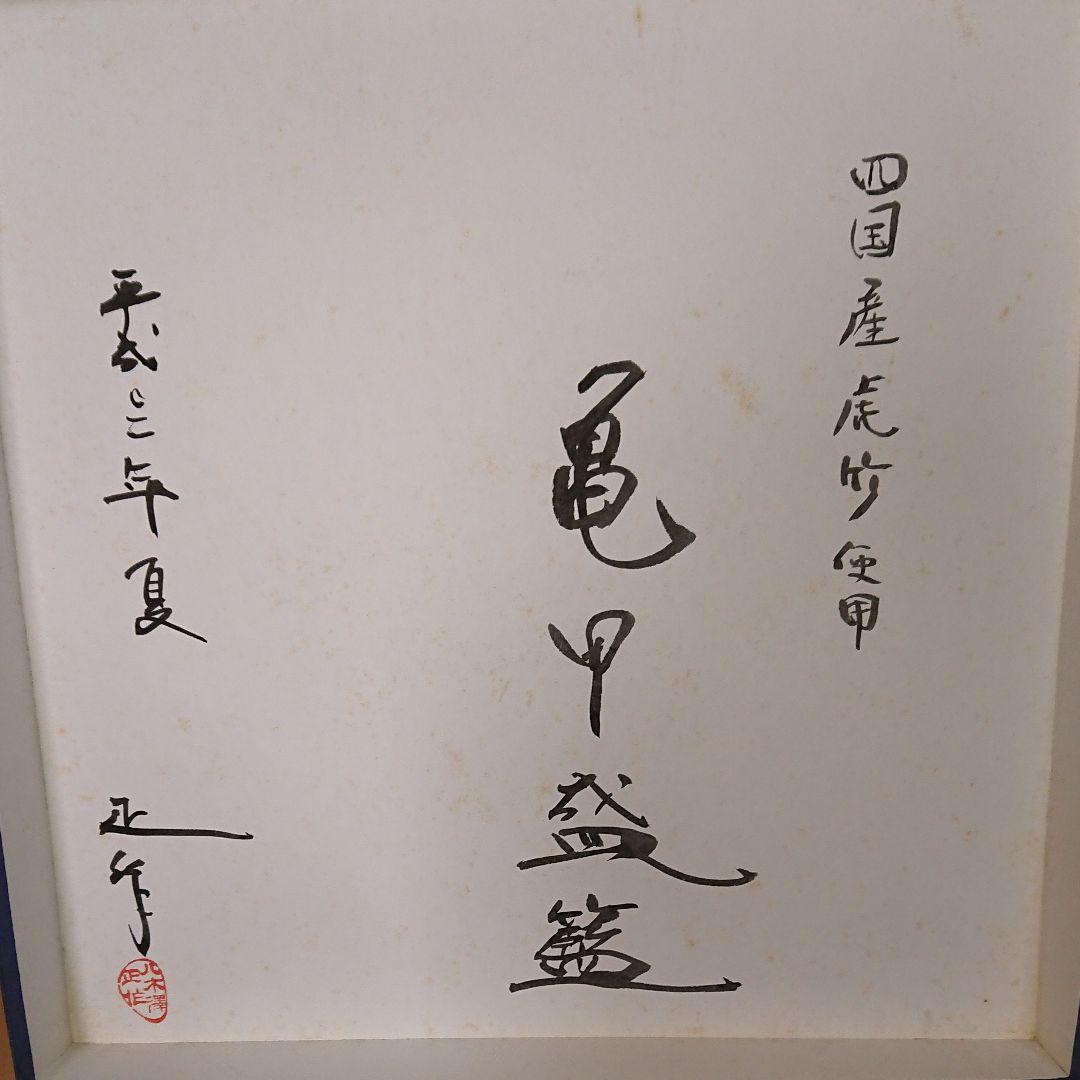 四国産虎竹使用
亀甲盛籃
平成三年夏
正作
八木澤
正作